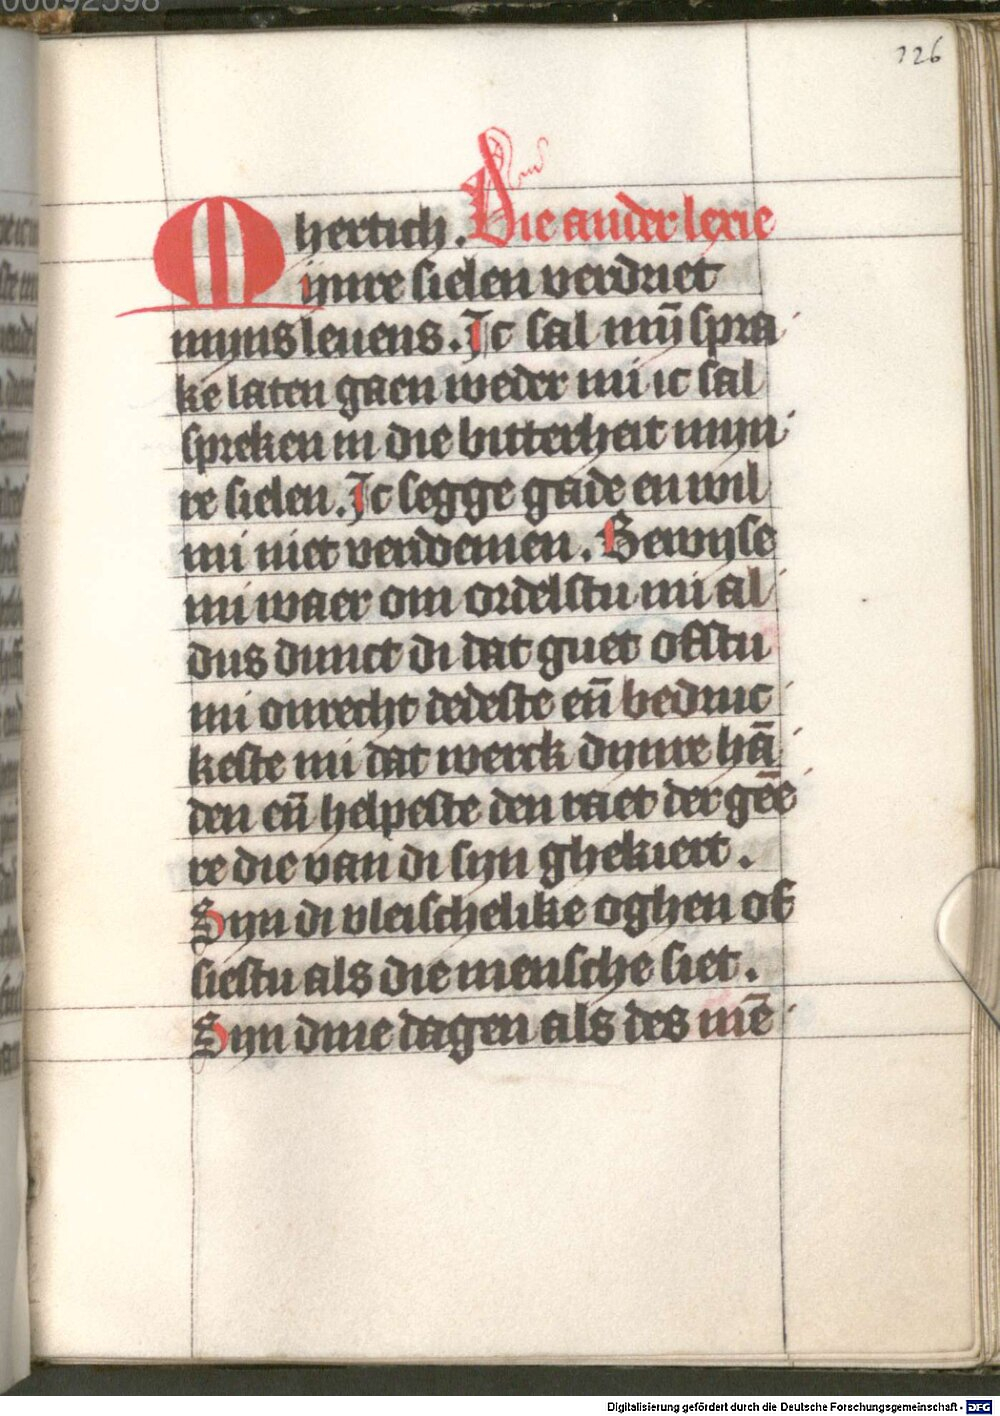 00092598
126
hertich. Die ander lexie
Mijnre sielen verdriet
mijns leuens. Ic sal mȳ spra
ke laten gaen weder mi ic sal
spreken in die bitterheit mijn
re sielen. Ic segge gade en wil
mi niet verdoemen. Bewijse
mi waer om ordelstu mi al
dus dunct di dat guet ofstu
mi onrecht dedeste en̄ bedruc
keste mi dat werck dijnre hā
den en̄ helpeste den raet der gēe
re die van di sijn ghekiert.
Sijn di vleischelike oghen of
siestu als die mensche siet.
Sijn dine dagen als des mē
Digitalisierung gefördert durch die Deutsche Forschungsgemeinschaft - DFG